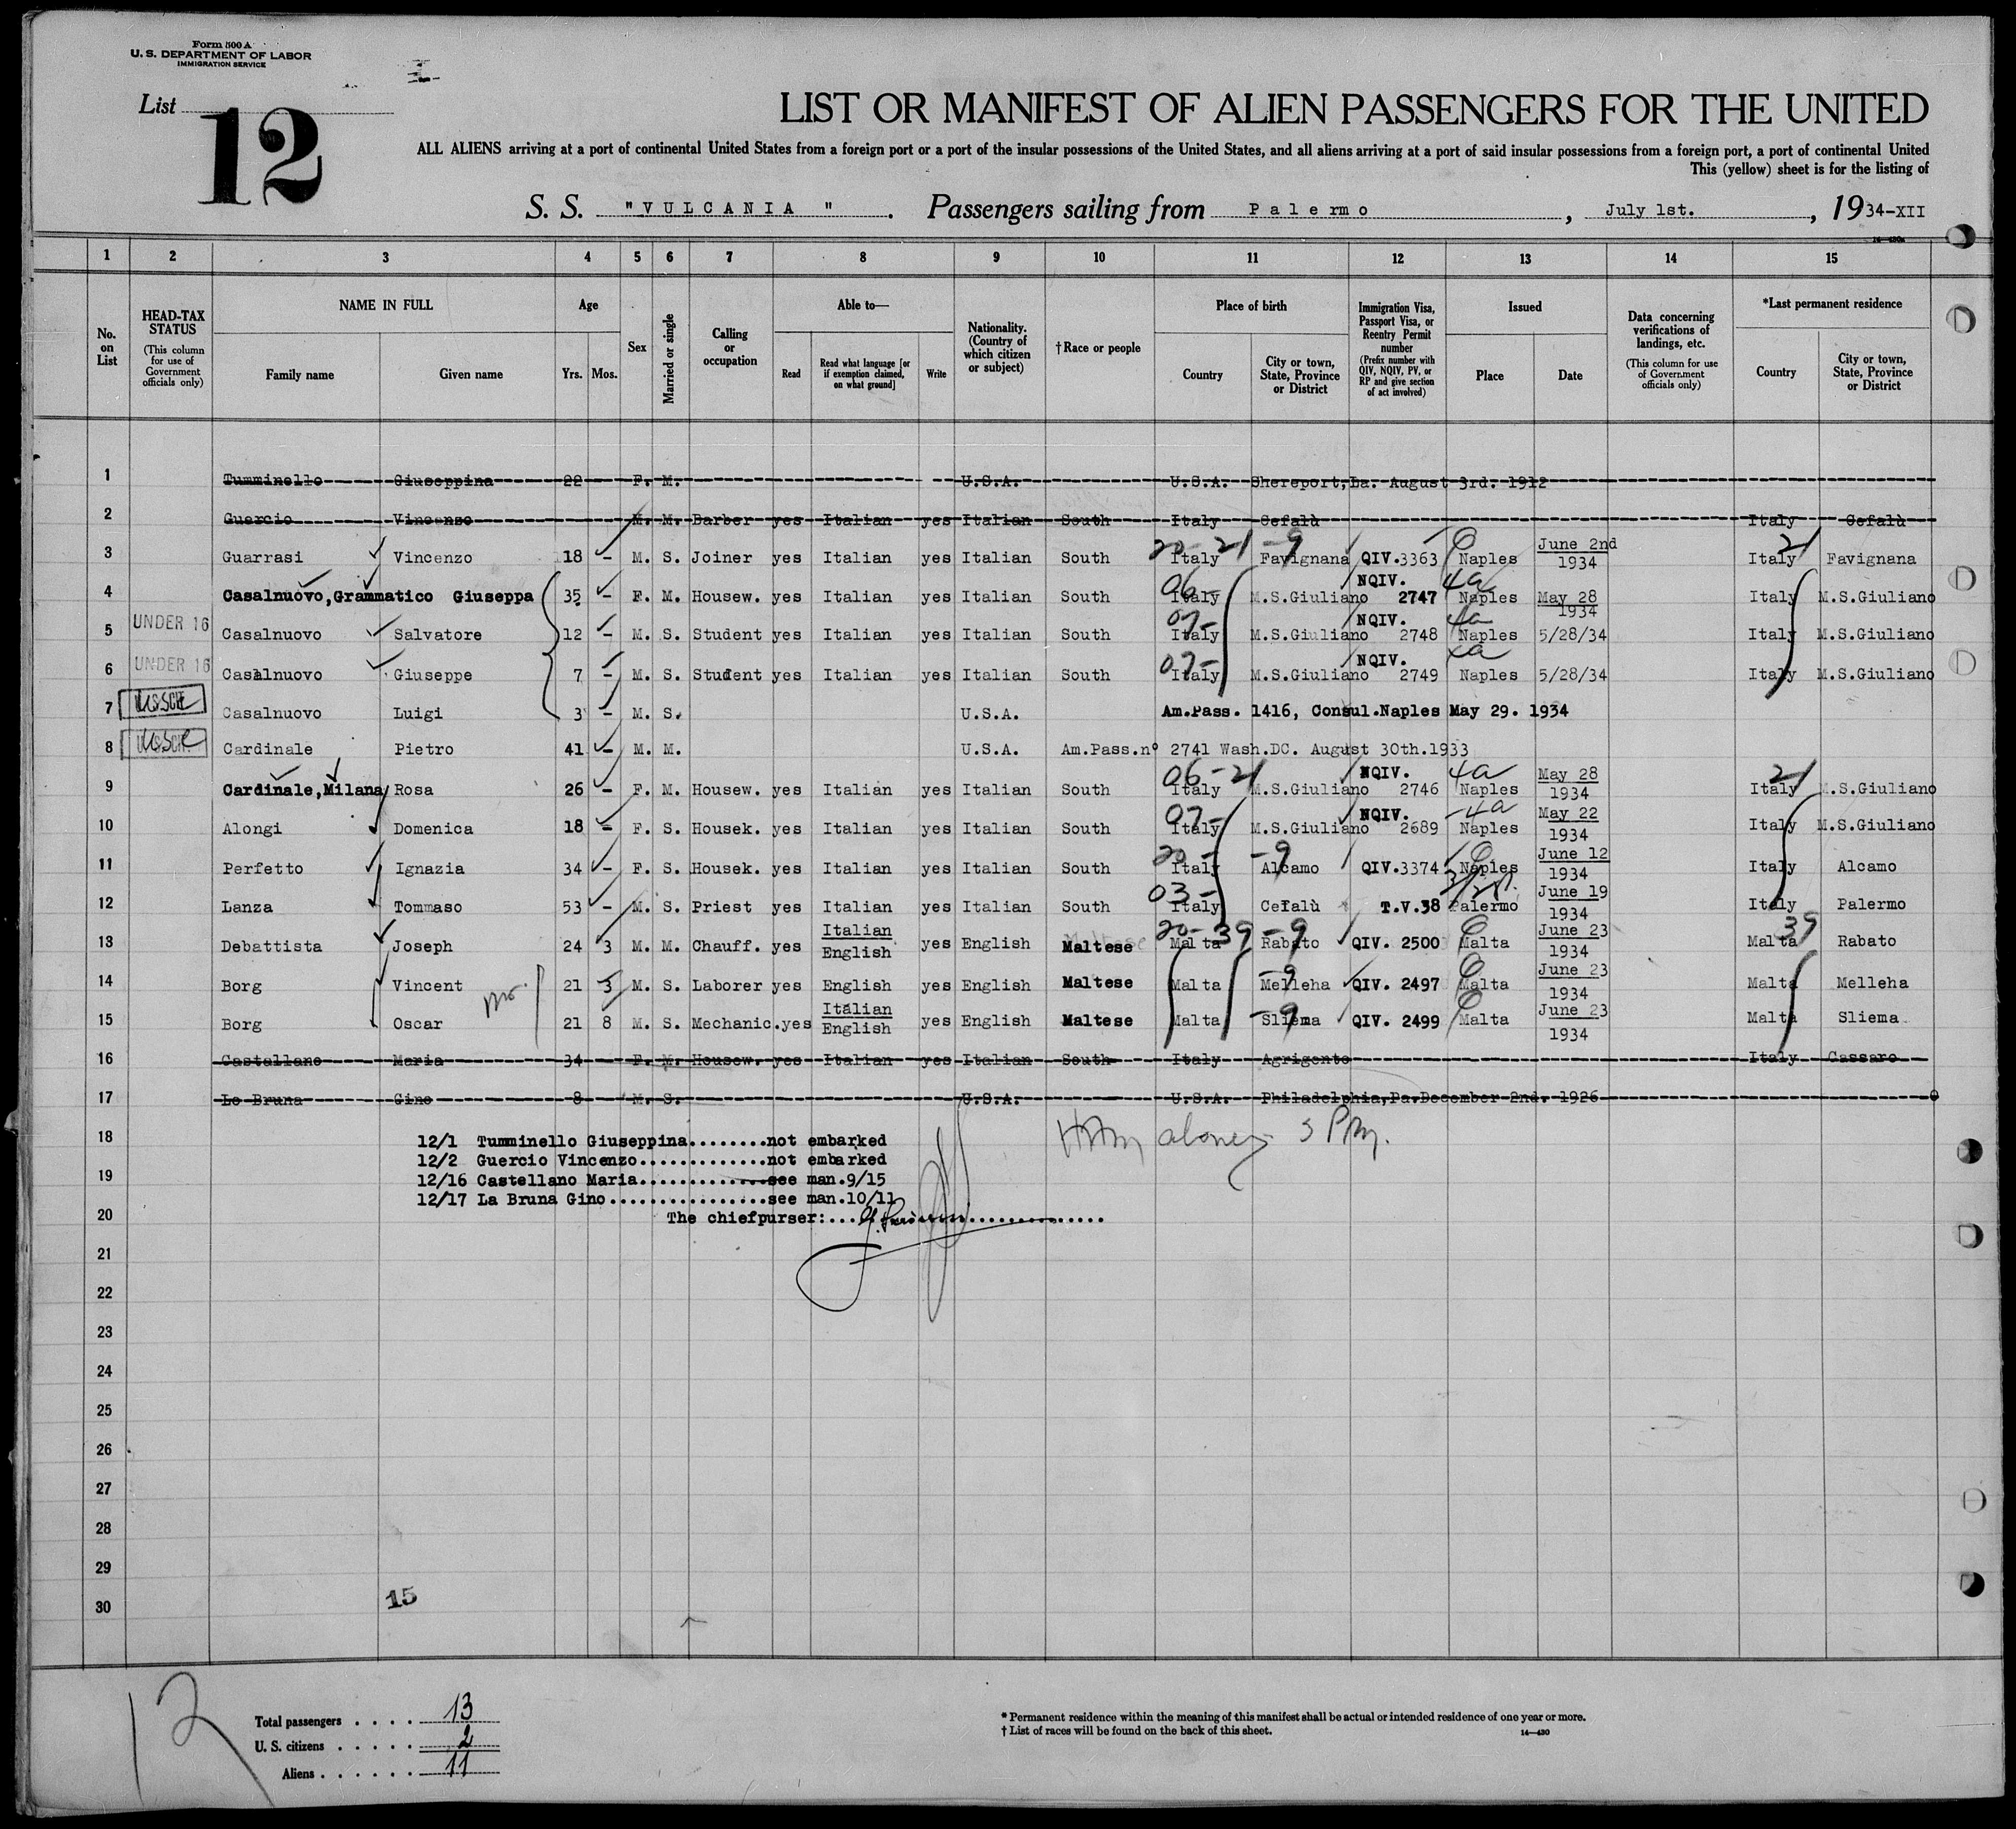 Form 500 A
U. S. DEPARTMENT OF LABOR
IMMIGRATION SERVICE
List 12
LIST OR MANIFEST OF ALIEN PASSENGERS FOR THE UNITED
ALL ALIENS arriving at a port of continental United States from a foreign port or a port of the insular possessions of the United States, and all aliens arriving at a port of said insular possessions from a foreign port, a port of continental United
This (yellow) sheet is for the listing of
S. S. "VULCANIA". Passengers sailing from Palermo, July 1st., 1934-XII
1 2 3 4 5 6 7 8 9 10 11 12 13 14 15
No. on List
HEAD-TAX STATUS (This column for use of Government officials only)
NAME IN FULL Family name Given name
Age Yrs. Mos.
Sex
Married or single
Calling or occupation
Able to— Read Read what language [or if exemption claimed, on what ground] Write
Nationality. (Country of which citizen or subject)
†Race or people
Place of birth Country City or town, State, Province or District
Immigration Visa, Passport Visa, or Reentry Permit number (Prefix number with QIV, NQIV, PV, or RP and give section of act involved)
Issued Place Date
Data concerning verifications of landings, etc. (This column for use of Government officials only)
*Last permanent residence Country City or town, State, Province or District
1 Tumminello Giuseppina 22 F. M. U.S.A. U.S.A. Shereport,La. August 3rd. 1912
2 Guercio Vincenzo M. M. Barber yes Italian yes Italian South Italy Cefalù Italy Cefalù
3 Guarrasi Vincenzo 18 - M. S. Joiner yes Italian yes Italian South 20-21 Italy -9 Favignana QIV.3363 Naples June 2nd 1934 21 Italy Favignana
4 Casalnuovo,Grammatico Giuseppa 35 - F. M. Housew. yes Italian yes Italian South 06- Italy M.S.Giuliano NQIV. 2747 4a Naples May 28 1934 Italy M.S.Giuliano
5 UNDER 16 Casalnuovo Salvatore 12 - M. S. Student yes Italian yes Italian South 07- Italy M.S.Giuliano NQIV. 2748 4a Naples 5/28/34 Italy M.S.Giuliano
6 UNDER 16 Casalnuovo Giuseppe 7 - M. S. Student yes Italian yes Italian South 07- Italy M.S.Giuliano NQIV. 2749 4a Naples 5/28/34 Italy M.S.Giuliano
7 Casalnuovo Luigi 3 - M. S. U.S.A. Am.Pass. 1416, Consul.Naples May 29. 1934
8 Cardinale Pietro 41 - M. M. U.S.A. Am.Pass.nº 2741 Wash.DC. August 30th.1933
9 Cardinale,Milana Rosa 26 - F. M. Housew. yes Italian yes Italian South 06-21 Italy M.S.Giuliano NQIV. 2746 4a Naples May 28 1934 21 Italy M.S.Giuliano
10 Alongi Domenica 18 - F. S. Housek. yes Italian yes Italian South 07- Italy M.S.Giuliano NQIV. 2689 4a Naples May 22 1934 Italy M.S.Giuliano
11 Perfetto Ignazia 34 - F. S. Housek. yes Italian yes Italian South 20- Italy -9 Alcamo QIV.3374 Naples June 12 1934 Italy Alcamo
12 Lanza Tommaso 53 - M. S. Priest yes Italian yes Italian South 03- Italy Cefalù T.V.38 Palermo June 19 1934 Italy Palermo
13 Debattista Joseph 24 3 M. M. Chauff. yes Italian English yes English Maltese 20-39 Malta -9 Rabato QIV. 2500 Malta June 23 1934 39 Malta Rabato
14 Borg Vincent 21 3 M. S. Laborer yes English yes English Maltese Malta -9 Melleha QIV. 2497 Malta June 23 1934 Malta Melleha
15 Borg Oscar 21 8 M. S. Mechanic.yes Italian English yes English Maltese Malta -9 Sliema QIV. 2499 Malta June 23 1934 Malta Sliema
16 Castellano Maria 34 F. M. Housew. yes Italian yes Italian South Italy Agrigento Italy Cassaro
17 Lo Bruna Gino 8 M. S. U.S.A. U.S.A. Philadelphia,Pa.December 2nd. 1926
18 12/1 Tumminello Giuseppina........not embarked
12/2 Guercio Vincenzo.............not embarked
19 12/16 Castellano Maria.............see man.9/15
12/17 La Bruna Gino................see man.10/11
20 The chiefpurser:...
21
22
23
24
25
26
27
28
29
30
15
12
Total passengers . . . . 13
U. S. citizens . . . . . 2
Aliens . . . . . . 11
* Permanent residence within the meaning of this manifest shall be actual or intended residence of one year or more.
† List of races will be found on the back of this sheet. 14—430